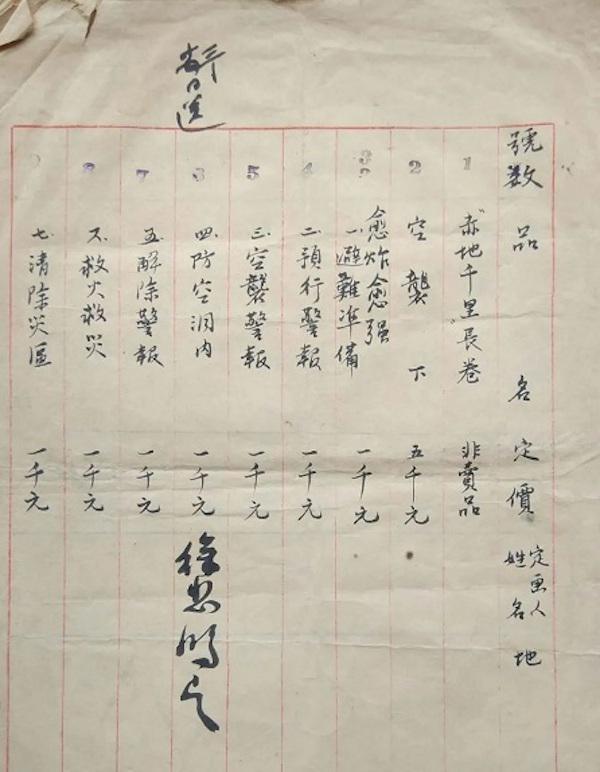 號数 品名 定價 定画人姓名 地
1 赤地千里長卷 非賣品
2 空襲下 五千元
3 愈炸愈强
一、避難準備 一千元
4 二、預行警報 一千元
5 三、空襲警報 一千元
6 四、防空洞内 一千元
7 五、解除警報 一千元
8 六、救火救災 一千元
七、清除災區 一千元